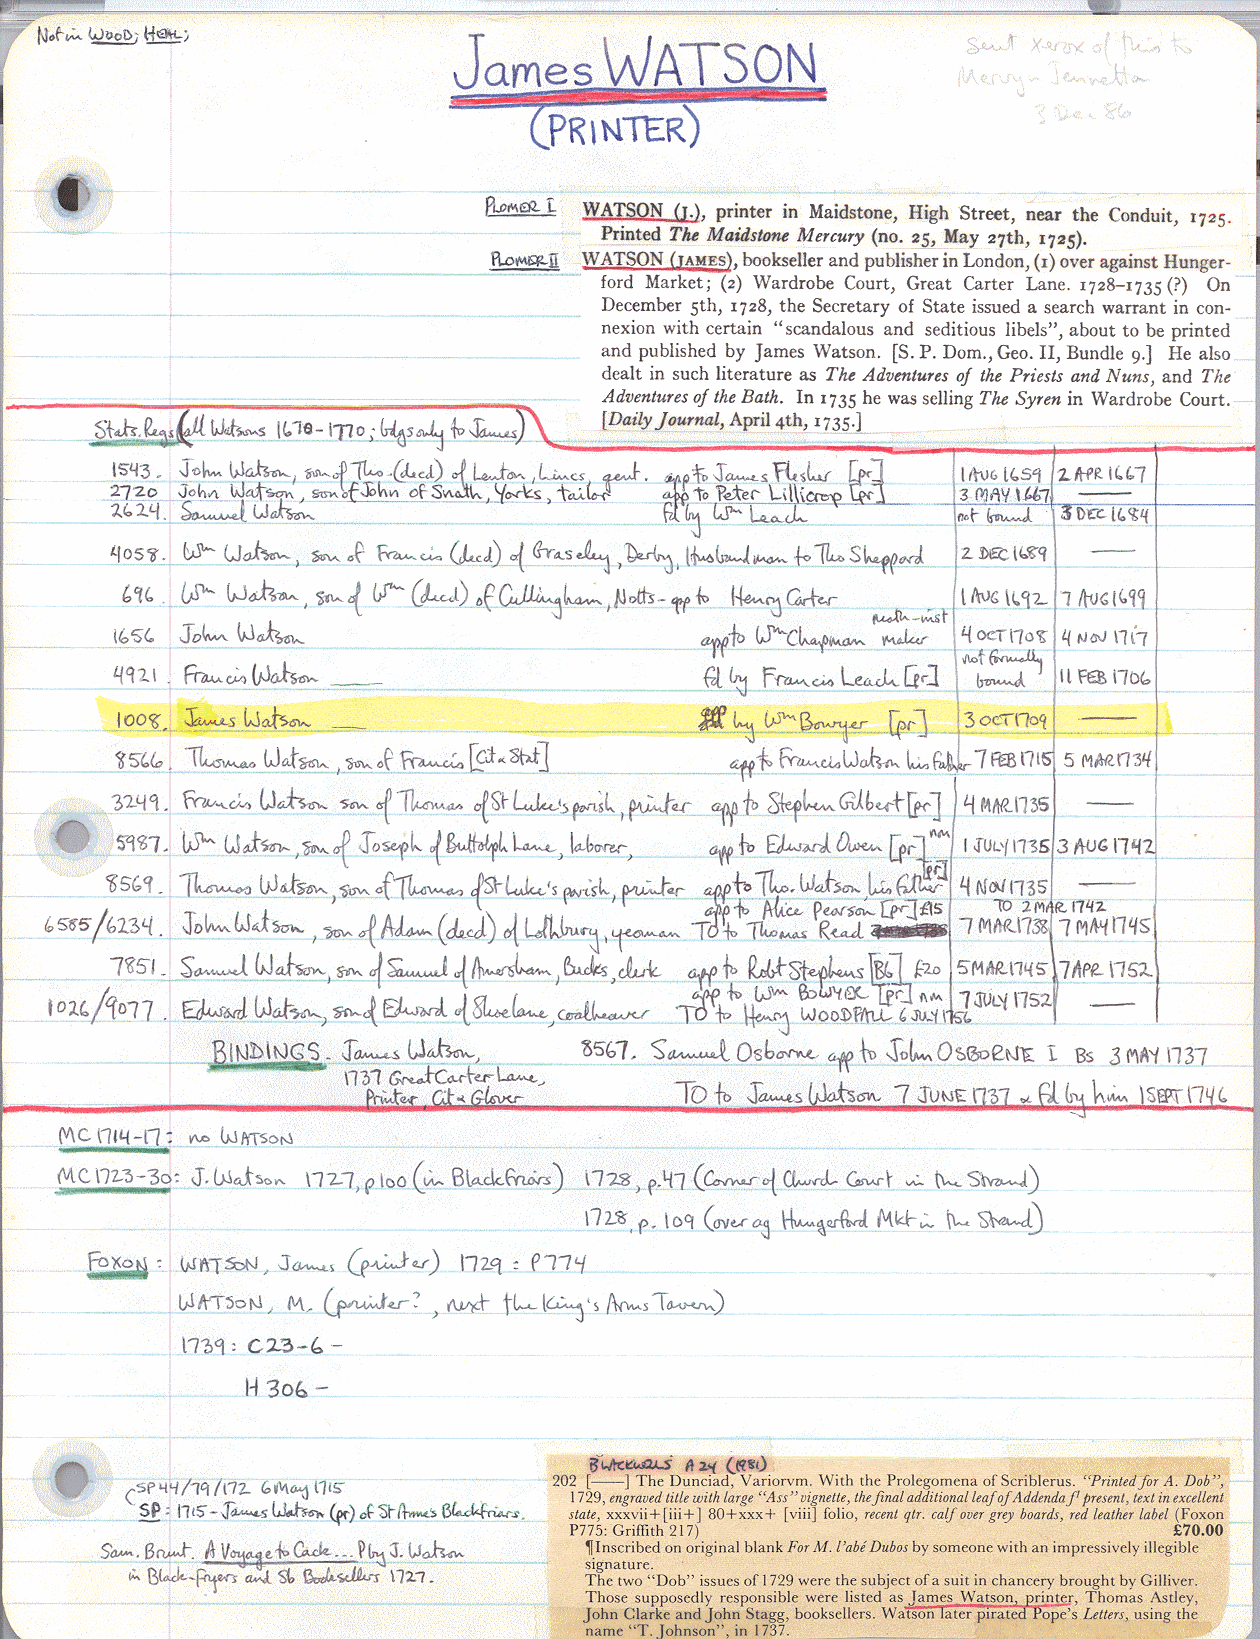 Not in WOOD; HEAL;
Sent xerox of this to
Mervyn Jannetta
3 Dec 86
James WATSON
(PRINTER)
PLOMER I
WATSON (J.), printer in Maidstone, High Street, near the Conduit, 1725.
Printed The Maidstone Mercury (no. 25, May 27th, 1725).
PLOMER II
WATSON (JAMES), bookseller and publisher in London, (1) over against Hunger-
ford Market; (2) Wardrobe Court, Great Carter Lane. 1728–1735 (?) On
December 5th, 1728, the Secretary of State issued a search warrant in con-
nexion with certain “scandalous and seditious libels”, about to be printed
and published by James Watson. [S. P. Dom., Geo. II, Bundle 9.] He also
dealt in such literature as The Adventures of the Priests and Nuns, and The
Adventures of the Bath. In 1735 he was selling The Syren in Wardrobe Court.
[Daily Journal, April 4th, 1735.]
Stats. Regs (all Watsons 1670-1770; bdgs only to James)
1543. John Watson, son of Tho. (decd) of Lenton, Lincs, gent. app to James Flesher [pr] 1 AUG 1659 2 APR 1667
2720 John Watson, son of John of Snath, Yorks, tailor app to Peter Lillicrop [pr] 3 MAY 1667 —
2624. Samuel Watson fd by Wm Leach not bound 3 DEC 1684
4058. Wm Watson, son of Francis (decd) of Graseley, Derby, Husbandman to Tho Sheppard 2 DEC 1689 —
696. Wm Watson, son of Wm (decd) of Cullingham, Notts - app to Henry Carter 1 AUG 1692 7 AUG 1699
math-inst
1656 John Watson app to Wm Chapman maker 4 OCT 1708 4 NOV 1717
not formally
4921. Francis Watson — fd by Francis Leach [pr] bound 11 FEB 1706
1008. James Watson — by Wm Bowyer [pr] 3 OCT 1709 —
8566. Thomas Watson, son of Francis [Cit & Stat] app to Francis Watson his father 7 FEB 1715 5 MAR 1734
3249. Francis Watson son of Thomas of St Luke's parish, printer app to Stephen Gilbert [pr] 4 MAR 1735 —
5987. Wm Watson, son of Joseph of Buttolph Lane, laborer, app to Edward Owen [pr] nm 1 JULY 1735 3 AUG 1742
8569. Thomas Watson, son of Thomas of St Luke's parish, printer app to Tho. Watson, his father [pr] 4 NOV 1735 —
app to Alice Pearson [pr] £15 TO 2 MAR 1742
6585/6234. John Watson, son of Adam (decd) of Lothbury, yeoman TO to Thomas Read 7 MAR 1738 7 MAY 1745
7851. Samuel Watson, son of Samuel of Amersham, Bucks, clerk app to Robt Stephens [Bb] £20 5 MAR 1745 7 APR 1752
app to Wm BOWYER [pr] nm 7 JULY 1752 —
1026/9077. Edward Watson, son of Edward of Shoe lane, coalheaver TO to Henry WOODFALL 6 JULY 1756
BINDINGS. James Watson, 8567. Samuel Osborne app to John OSBORNE I Bs 3 MAY 1737
1737 Great Carter Lane,
Printer, Cit & Glover TO to James Watson 7 JUNE 1737 & fd by him 1 SEPT 1746
MC 1714-17: no WATSON
MC 1723-30: J. Watson 1727, p100 (in Blackfriars) 1728, p.47 (Corner of Church Court in the Strand)
1728, p. 109 (over ag Hungerford Mkt in the Strand)
FOXON: WATSON, James (printer) 1729: P774
WATSON, M. (printer?, next the King's Arms Tavern)
1739: C23-6 -
H306 -
SP44/79/172 6 May 1715
SP: 1715 - James Watson (pr) of St Anne's Blackfriars.
Sam. Brunt. A Voyage to Cack... P by J. Watson
in Black-fryers and Sb Booksellers 1727.
BLACKWELLS A24 (1981)
202 [——] The Dunciad, Variorvm. With the Prolegomena of Scriblerus. “Printed for A. Dob”,
1729, engraved title with large “Ass” vignette, the final additional leaf of Addenda f¹ present, text in excellent
state, xxxvii+[iii+] 80+xxx+ [viii] folio, recent qtr. calf over grey boards, red leather label (Foxon
P775: Griffith 217) £70.00
¶Inscribed on original blank For M. l'abé Dubos by someone with an impressively illegible
signature.
The two “Dob” issues of 1729 were the subject of a suit in chancery brought by Gilliver.
Those supposedly responsible were listed as James Watson, printer, Thomas Astley,
John Clarke and John Stagg, booksellers. Watson later pirated Pope's Letters, using the
name “T. Johnson”, in 1737.